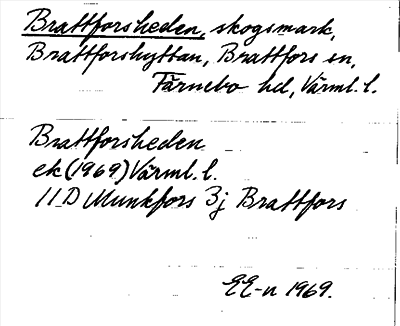 Brattforsheden, skogsmark,
Brattforshyttan, Brattfors sn,
Färnebo hd, Värml. l.
Brattforsheden
ek (1969) Värml. l.
11 D Munkfors 3j Brattfors
EE-n 1969.